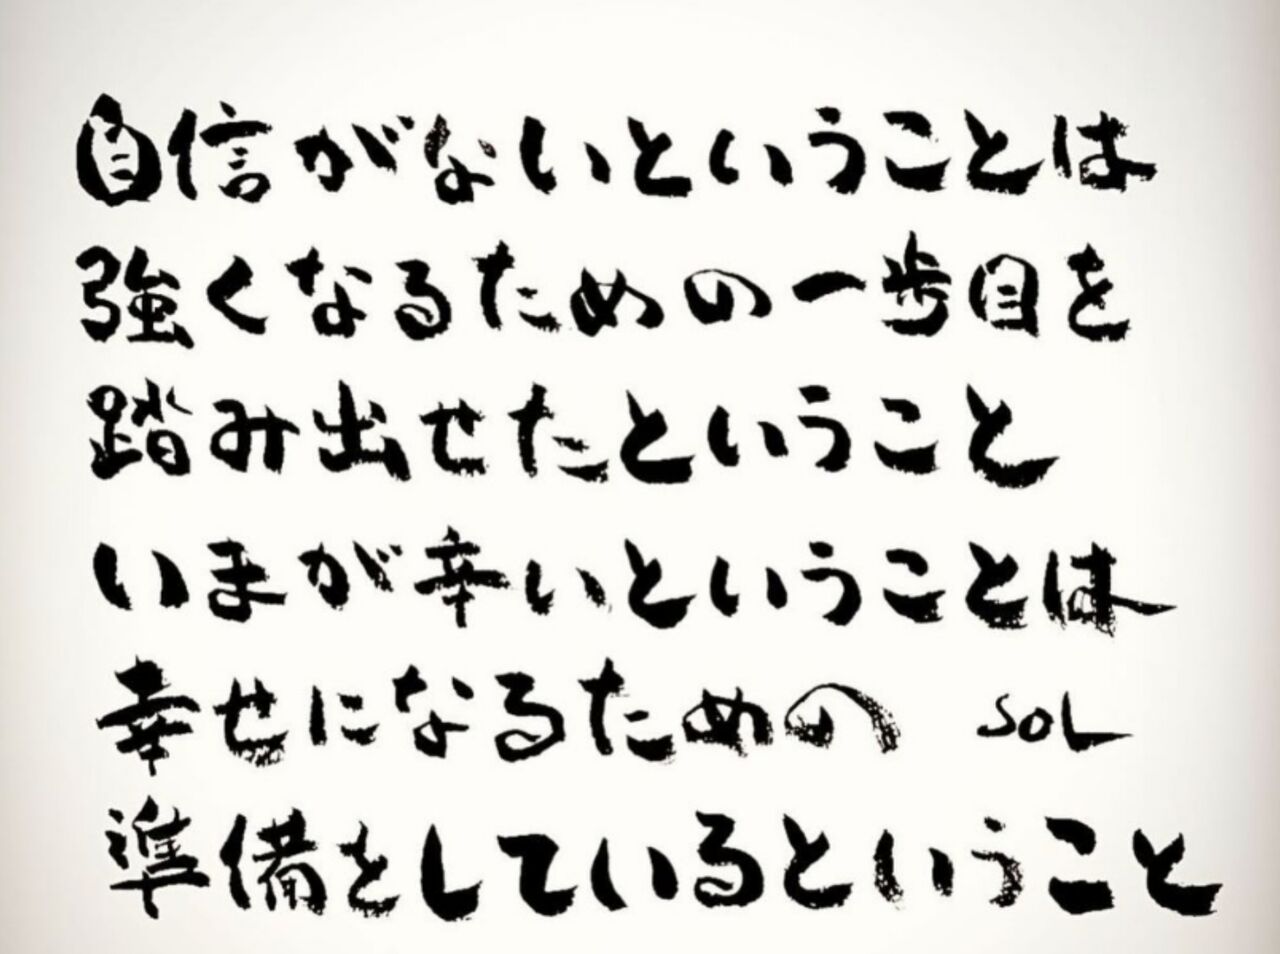 自信がないということは
強くなるための一歩目を
踏み出せたということ
いまが辛いということは
幸せになるための SOL
準備をしているということ